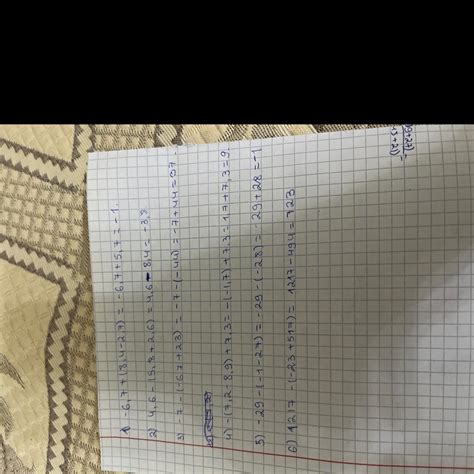 1) -6,7+(8,4-2,7) = -6,7+5,7=-1.
2) 4,6-(5,8+2,6)=4,6-8,4=-3,8
3) -7-(-67+23) = -7-(-44)=-7+44=37
4) -(7,2-8,9)+7,3=-(-1,7)+7,3=1,7+7,3=9.
5) -29-(-1-27)=-29-(-28)=-29+28=-1
6) 1217-(-23+517)= 1217-494=723